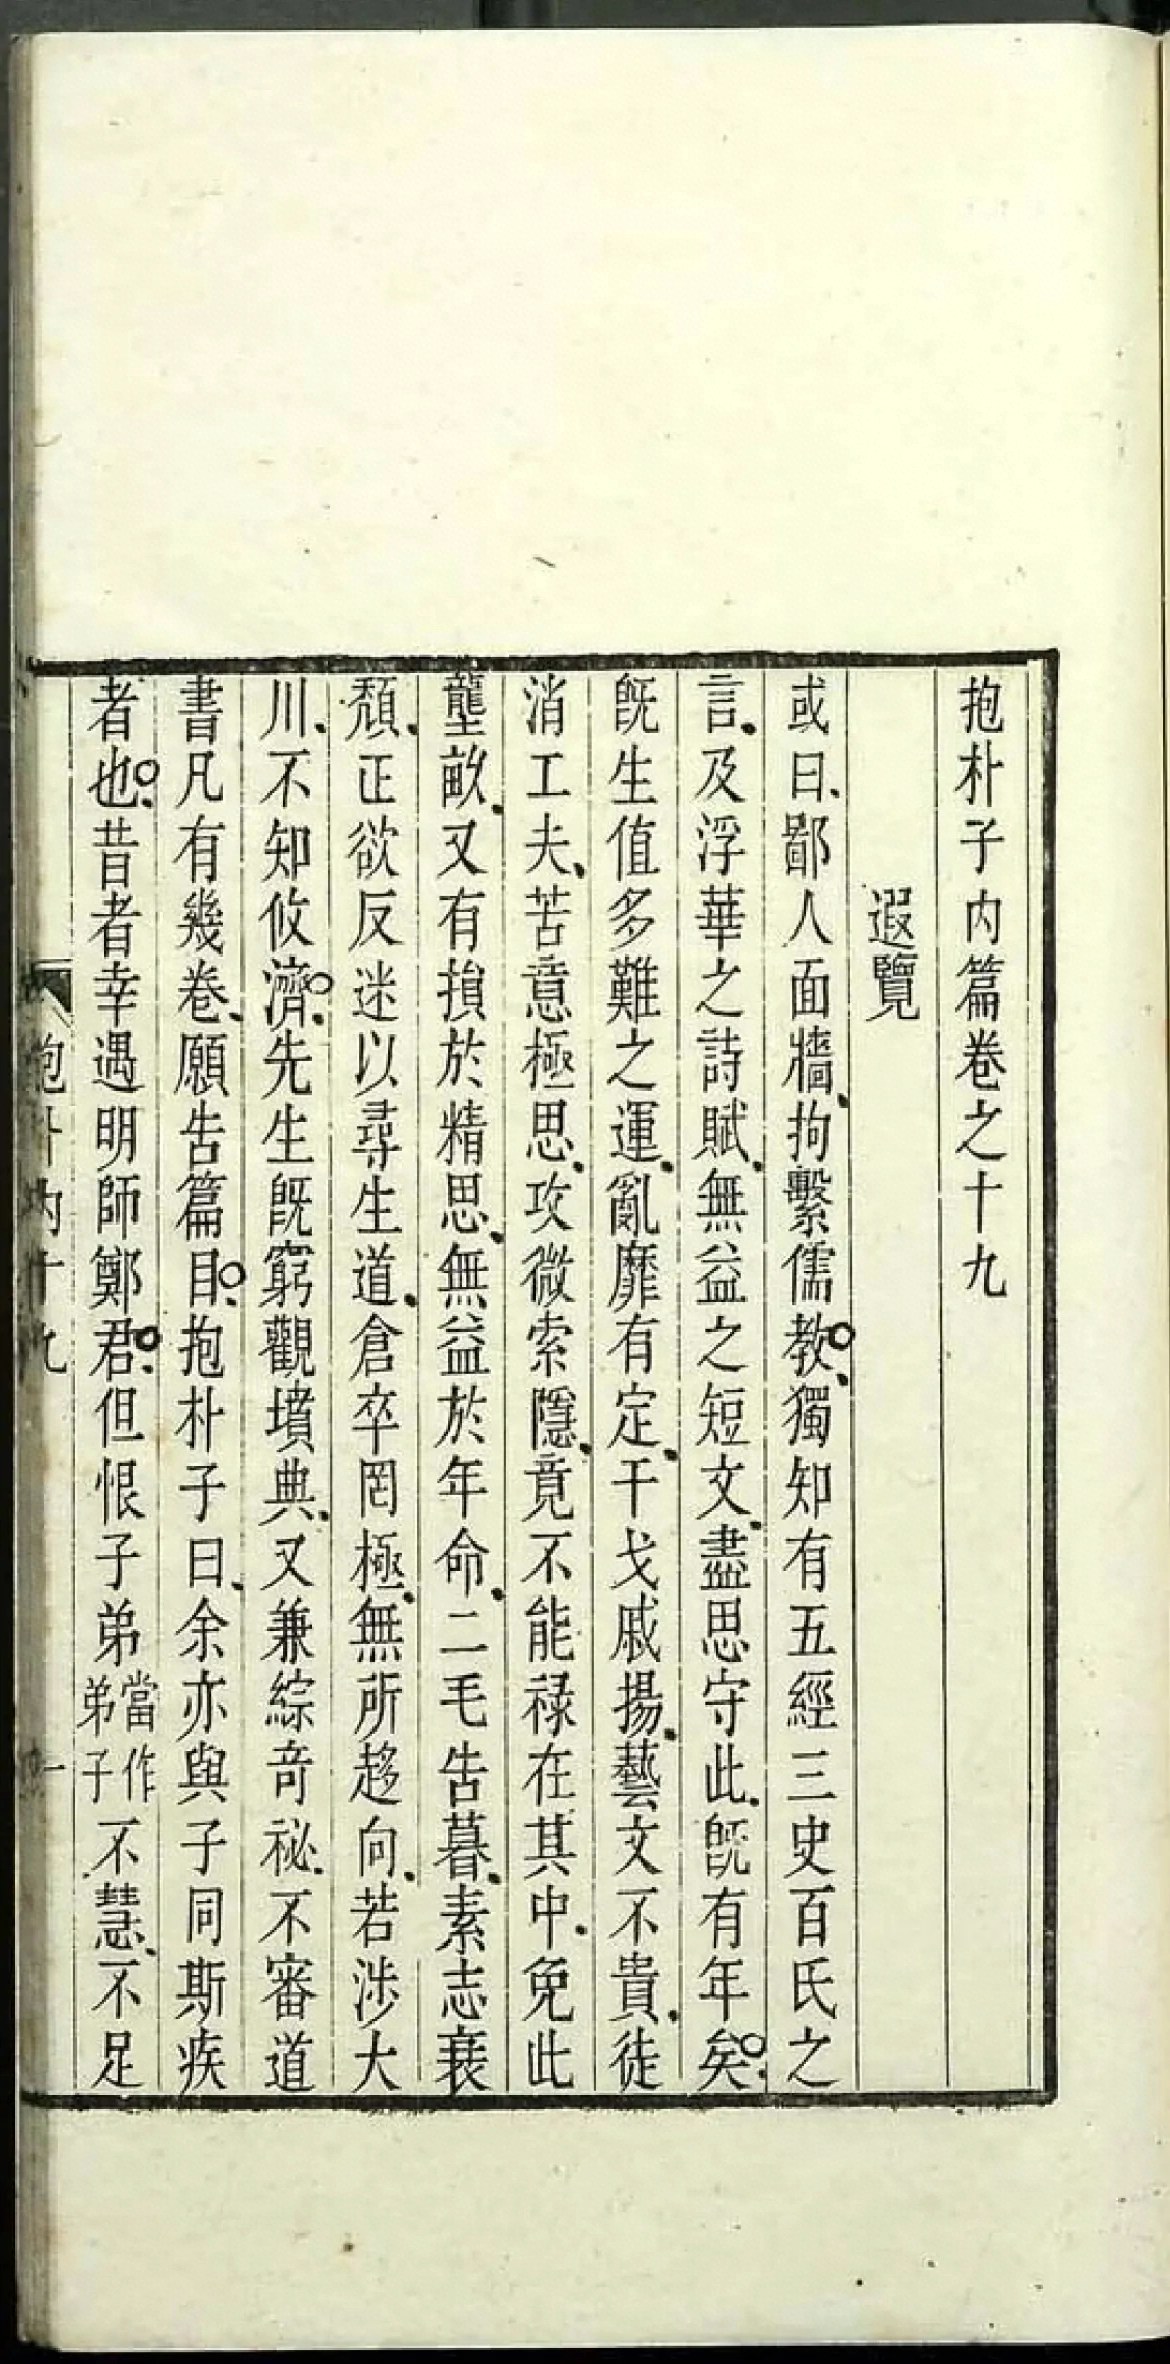 抱朴子内篇卷之十九
遐覽
或曰、鄙人面牆、拘繫儒教、獨知有五經三史百氏之
言、及浮華之詩賦、無益之短文、盡思守此、旣有年矣、
旣生值多難之運、亂靡有定、干戈戚揚、藝文不貴、徒
消工夫、苦意極思、攻微索隱、竟不能祿在其中、免此
壟畝、又有損於精思、無益於年命、二毛告暮、素志衰
頹、正欲反迷以尋生道、倉卒罔極、無所趍向、若涉大
川、不知攸濟、先生旣窮觀墳典、又兼綜竒祕、不審道
書凡有幾卷、願告篇目、抱朴子曰、余亦與子同斯疾
者也、昔者幸遇明師鄭君、但恨子弟當作弟子不慧、不足
抱朴内十九 一